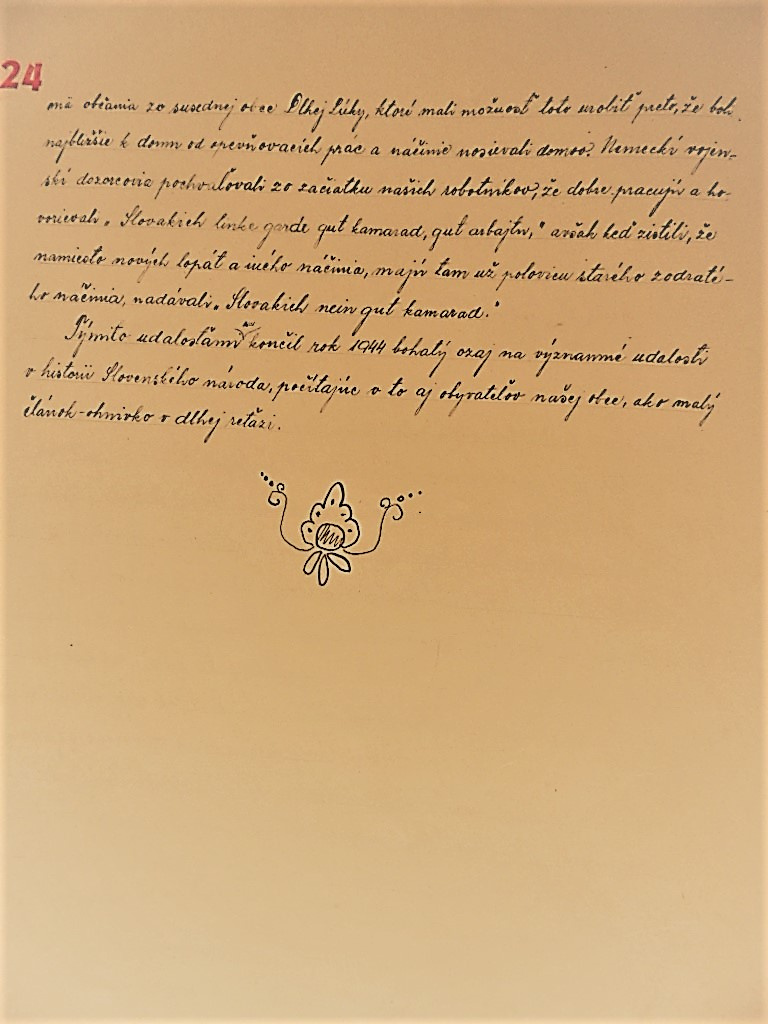 24
mä občania zo susednej obce Dlhej Lúky, ktorí mali možnosť toto urobiť preto, že boli
najbližšie k domu od opevňovacích prac a náčinie nosievali domov. Nemeckí vojen-
skí dozorcovia pochvaľovali zo začiatku našich robotníkov, že dobre pracujú a ho-
vorievali „Slovakich linke garde gut kamarad, gut arbajtn," avšak keď zistili, že
namiesto nových lopát a iného náčinia, majú tam už polovicu starého zodraté-
ho náčinia, nadávali „Slovakich nein gut kamarad."
Týmito udalosťami končil rok 1944 bohatý ozaj na významné udalosti
v histórii Slovenského národa, počítajúc v to aj obyvateľov našej obce, ako malý
článok-ohnivko v dlhej reťazi.